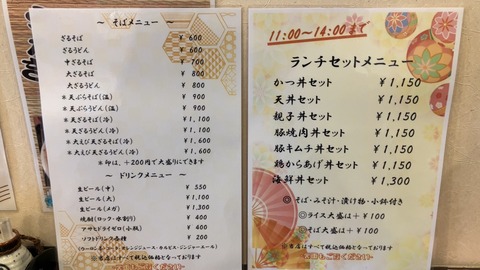 ～ そばメニュー ～
ざるそば ￥ 600
ざるうどん ￥ 600
中ざるそば ￥ 700
大ざるそば ￥ 800
大ざるうどん ￥ 800
＊天ぷらそば（温） ￥ 900
＊天ぷらうどん（温） ￥ 900
＊天ざるそば（冷） ￥ 1,100
＊天ざるうどん（冷） ￥ 1,100
＊大えび天ざるそば（冷） ￥ 1,600
＊大えび天ざるうどん（冷） ￥ 1,600
＊印は、＋200円で大盛りにできます
～ ドリンクメニュー ～
生ビール（中） ￥ 550
生ビール（大） ￥ 1,100
生ビール（メガ） ￥ 1,300
焼酎（ロック・水割り） ￥ 400
アサヒドライゼロ（小瓶） ￥ 400
ソフトドリンク各種 ￥ 200
（ウーロン茶・コーラ・オレンジジュース・カルピス・ジンジャーエール）
※当店はすべて税込価格となっております
11:00～14:00まで
ランチセットメニュー
かつ丼セット ￥1,150
天丼セット ￥1,150
親子丼セット ￥1,150
豚焼肉丼セット ￥1,150
豚キムチ丼セット ￥1,150
鶏からあげ丼セット ￥1,150
海鮮丼セット ￥1,300
◎そば・みそ汁・漬け物・小鉢付き
◎ライス大盛は＋￥100
◎そば大盛は＋￥100
※当店はすべて税込価格となっております